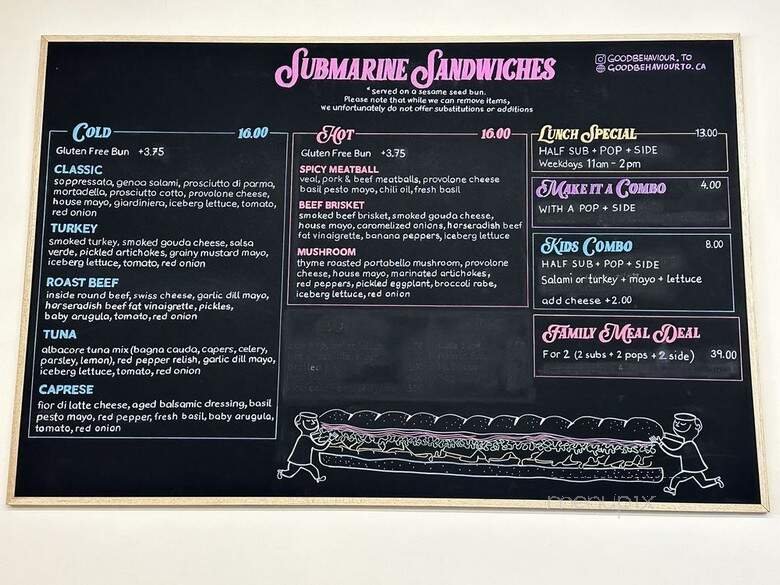 SUBMARINE SANDWICHES
*Served on a sesame seed bun.
Please note that while we can remove items,
we unfortunately do not offer substitutions or additions
GOODBEHAVIOUR.TO
GOODBEHAVIOURTO.CA
COLD 16.00
Gluten Free Bun +3.75
CLASSIC
soppressata, genoa salami, prosciutto di parma,
mortadella, prosciutto cotto, provolone cheese,
house mayo, giardiniera, iceberg lettuce, tomato,
red onion
TURKEY
smoked turkey, smoked gouda cheese, salsa
verde, pickled artichokes, grainy mustard mayo,
iceberg lettuce, tomato, red onion
ROAST BEEF
inside round beef, swiss cheese, garlic dill mayo,
horseradish beef fat vinaigrette, pickles,
baby arugula, tomato, red onion
TUNA
albacore tuna mix (bagna cauda, capers, celery,
parsley, lemon), red pepper relish, garlic dill mayo,
iceberg lettuce, tomato, red onion
CAPRESE
fior di latte cheese, aged balsamic dressing, basil
pesto mayo, red pepper, fresh basil, baby arugula,
tomato, red onion
HOT 16.00
Gluten Free Bun +3.75
SPICY MEATBALL
veal, pork & beef meatballs, provolone cheese
basil pesto mayo, chili oil, fresh basil
BEEF BRISKET
smoked beef brisket, smoked gouda cheese,
house mayo, caramelized onions, horseradish beef
fat vinaigrette, banana peppers, iceberg lettuce
MUSHROOM
thyme roasted portabello mushroom, provolone
cheese, house mayo, marinated artichokes,
red peppers, pickled eggplant, broccoli rabe,
iceberg lettuce, red onion
LUNCH SPECIAL 13.00
HALF SUB + POP + SIDE
Weekdays 11am - 2pm
MAKE IT A COMBO 4.00
WITH A POP + SIDE
KIDS COMBO 8.00
HALF SUB + POP + SIDE
Salami or turkey + mayo + lettuce
add cheese +2.00
FAMILY MEAL DEAL
For 2 (2 subs + 2 pops + 2 side) 39.00
menupix